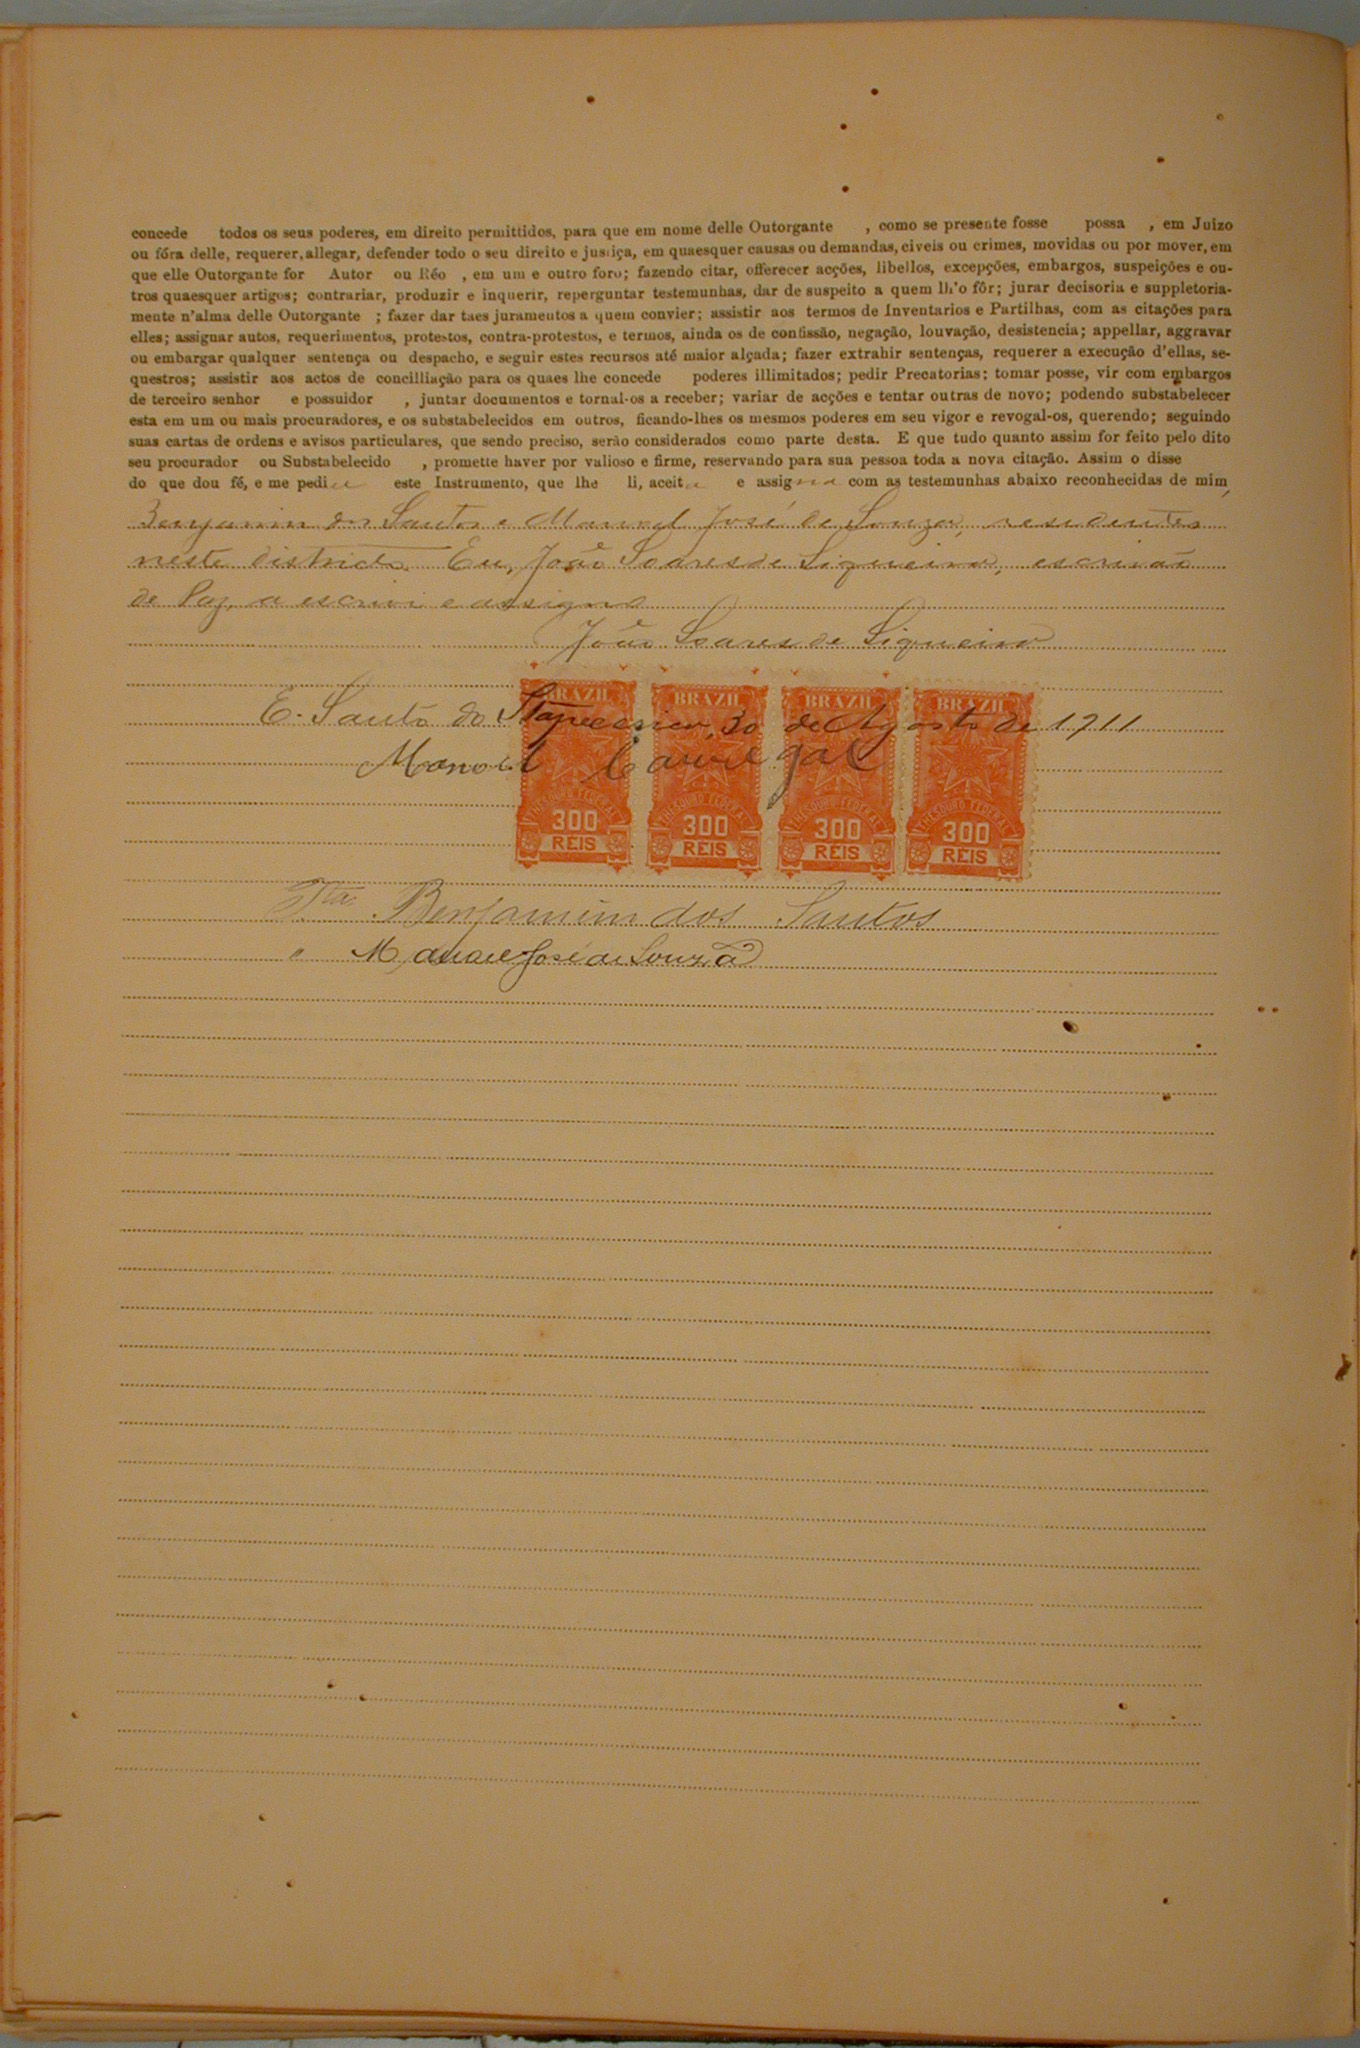 concede todos os seus poderes, em direito permittidos, para que em nome delle Outorgante , como se presente fosse possa , em Juizo
ou fóra delle, requerer, allegar, defender todo o seu direito e justiça, em quaesquer causas ou demandas, civeis ou crimes, movidas ou por mover, em
que elle Outorgante for Autor ou Réo , em um e outro foro; fazendo citar, offerecer acções, libellos, excepções, embargos, suspeições e ou-
tros quaesquer artigos; contrariar, produzir e inquerir, reperguntar testemunhas, dar de suspeito a quem lh'o fôr; jurar decisoria e suppletoria-
mente n'alma delle Outorgante ; fazer dar taes juramentos a quem convier; assistir aos termos de Inventarios e Partilhas, com as citações para
elles; assignar autos, requerimentos, protestos, contra-protestos, e termos, ainda os de confissão, negação, louvação, desistencia; appellar, aggravar
ou embargar qualquer sentença ou despacho, e seguir estes recursos até maior alçada; fazer extrahir sentenças, requerer a execução d'ellas, se-
questros; assistir aos actos de concilliação para os quaes lhe concede poderes illimitados; pedir Precatorias; tomar posse, vir com embargos
de terceiro senhor e possuidor , juntar documentos e tornal-os a receber; variar de acções e tentar outras de novo; podendo substabelecer
esta em um ou mais procuradores, e os substabelecidos em outros, ficando-lhes os mesmos poderes em seu vigor e revogal-os, querendo; seguindo
suas cartas de ordens e avisos particulares, que sendo preciso, serão considerados como parte desta. E que tudo quanto assim for feito pelo dito
seu procurador ou Substabelecido , promette haver por valioso e firme, reservando para sua pessoa toda a nova citação. Assim o disse
do que dou fé, e me pediu este Instrumento, que lhe li, aceita e assigna com as testemunhas abaixo reconhecidas de mim,
Benjamin dos Santos e Manoel José de Souza, residentes
neste districto. Eu, João Soares de Siqueira, escrivão
de Paz, a escrevi e assigno
João Soares de Siqueira
E. Santo do Itapecerica, 30 de Agosto de 1911
Manoel Carregal
BRAZIL BRAZIL BRAZIL BRAZIL
THESOURO FEDERAL THESOURO FEDERAL THESOURO FEDERAL THESOURO FEDERAL
300 300 300 300
REIS REIS REIS REIS
Tta Benjamim dos Santos
" Manoel José de Souza